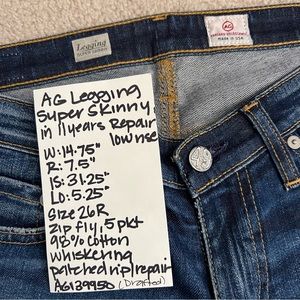 Legging
SUPER SKINNY
AG
MADE IN USA
AG Legging
Super Skinny
in 11 years Repair
low rise
W: 14.75"
R: 7.5"
IS: 31.25"
LO: 5.25"
Size 26R
Zip fly, 5 pkt
98% cotton
Whiskering
patched rip/repair
AG139950 (Drafted)